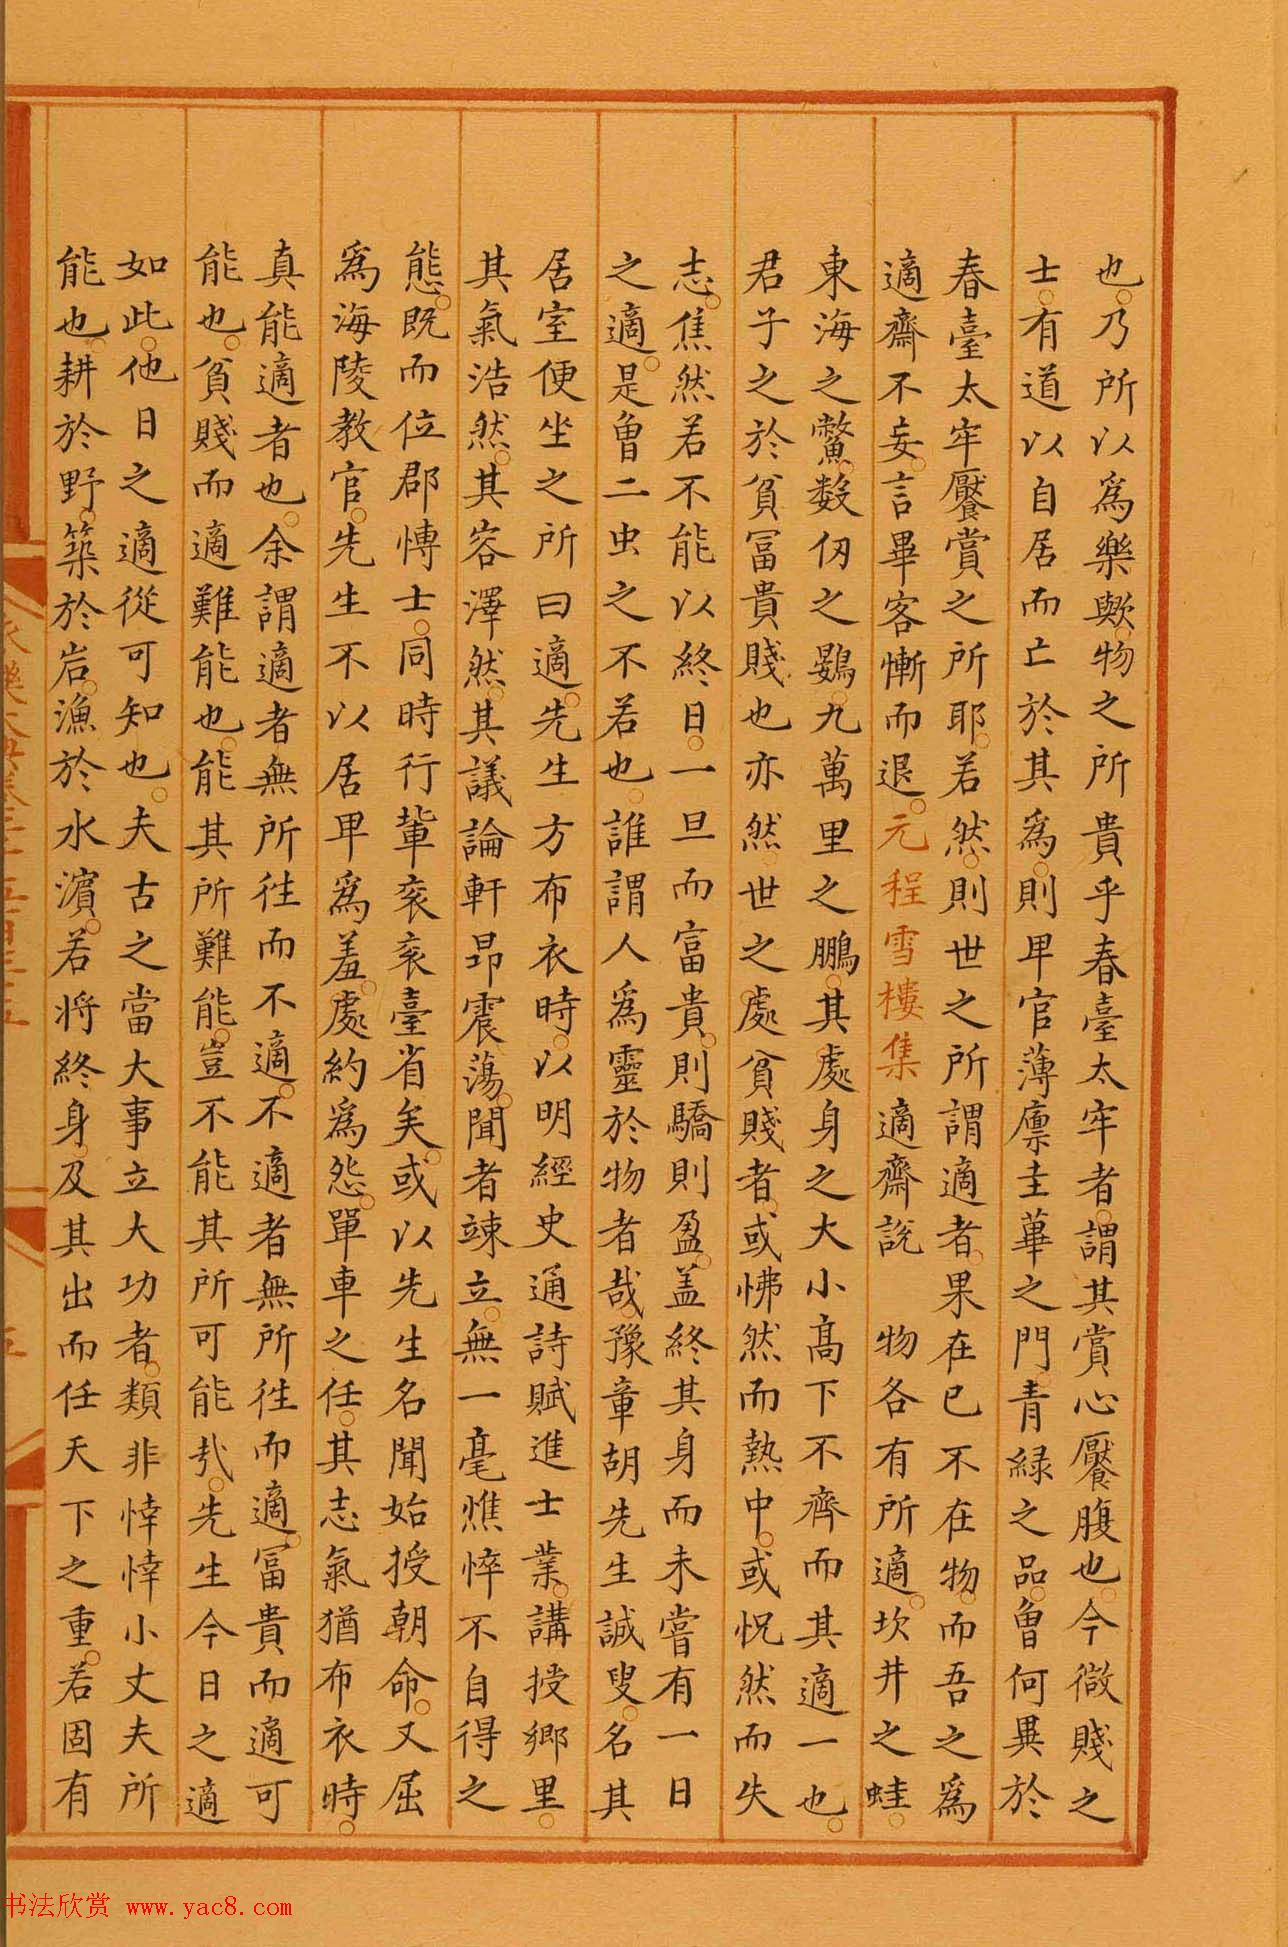 也乃所以爲樂歟物之所貴乎春臺太牢者謂其賞心饜腹也今微賤之
士有道以自居而亡於其爲則卑官薄廪圭蓽之門青緑之品曾何異於
春臺太牢饜賞之所耶若然則世之所謂適者果在己不在物而吾之爲
適齋不妄言畢客慚而退元程雪樓集 適齋說 物各有所適坎井之蛙
東海之鱉數仞之鷃九萬里之鵬其處身之大小高下不齊而其適一也
君子之於貧冨貴賤也亦然世之處貧賤者或怫然而熱中或怳然而失
志焦然若不能以終日一旦而富貴則驕則盈盖終其身而未嘗有一日
之適是曾二虫之不若也誰謂人爲靈於物者哉豫章胡先生誠叟名其
居室便坐之所曰適先生方布衣時以明經史通詩賦進士業講授鄉里
其氣浩然其容澤然其議論軒昂震蕩聞者竦立無一毫憔悴不自得之
態既而位郡博士同時行輩衮衮臺省矣或以先生名聞始授朝命又屈
爲海陵教官先生不以居卑爲羞處約爲怨單車之任其志氣猶布衣時
真能適者也余謂適者無所徃而不適不適者無所徃而適冨貴而適可
能也貧賤而適難能也能其所難能豈不能其所可能㢤先生今日之適
如此他日之適從可知也夫古之當大事立大功者類非悻悻小丈夫所
能也耕於野築於岩漁於水濵若將終身及其出而任天下之重若固有
永樂大典卷之二千五百三十五
五
书法欣赏 www.yac8.com